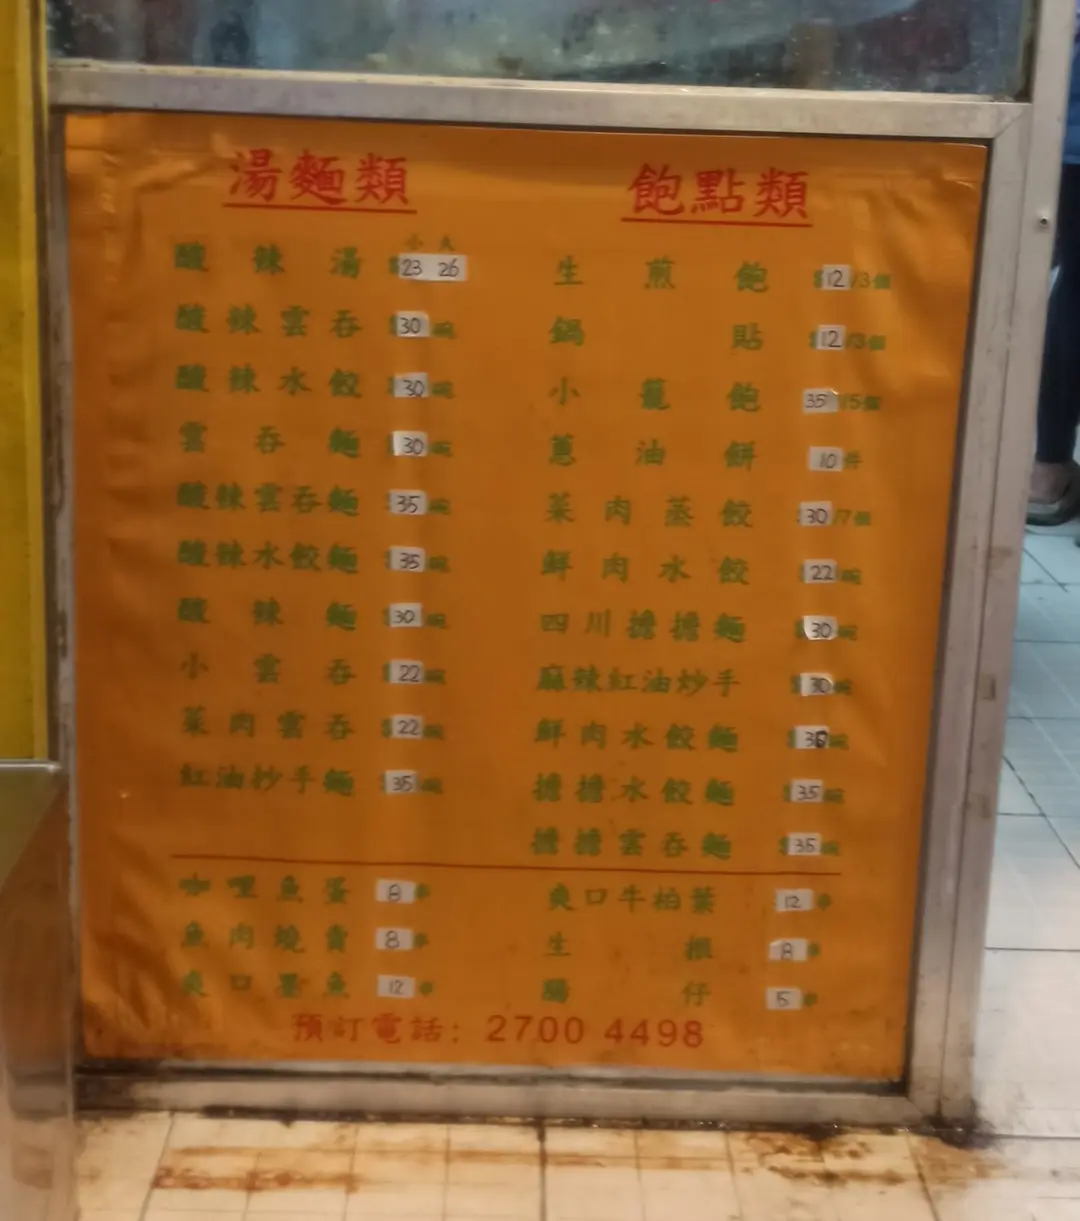 湯麵類
小 大
酸辣湯 $23 26
酸辣雲吞 $30碗
酸辣水餃 $30碗
雲吞麵 $30碗
酸辣雲吞麵 $35碗
酸辣水餃麵 $35碗
酸辣麵 $30碗
小雲吞 $22碗
菜肉雲吞 $22碗
紅油抄手麵 $35碗
飽點類
生煎飽 $12/3個
鍋貼 $12/3個
小籠飽 35/5個
蔥油餅 10件
菜肉蒸餃 $30/7個
鮮肉水餃 $22碗
四川擔擔麵 $30碗
麻辣紅油炒手 $30碗
鮮肉水餃麵 $36碗
擔擔水餃麵 $35碗
擔擔雲吞麵 $35碗
咖哩魚蛋 8串
魚肉燒賣 8串
爽口墨魚 12串
爽口牛柏葉 12串
生根 8串
腸仔 5串
預訂電話: 2700 4498